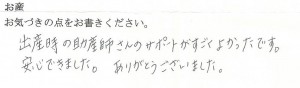 お産
お気づきの点をお書きください。
出産時の助産師さんのサポートがすごくよかったです。
安心できました。 ありがとうございました。